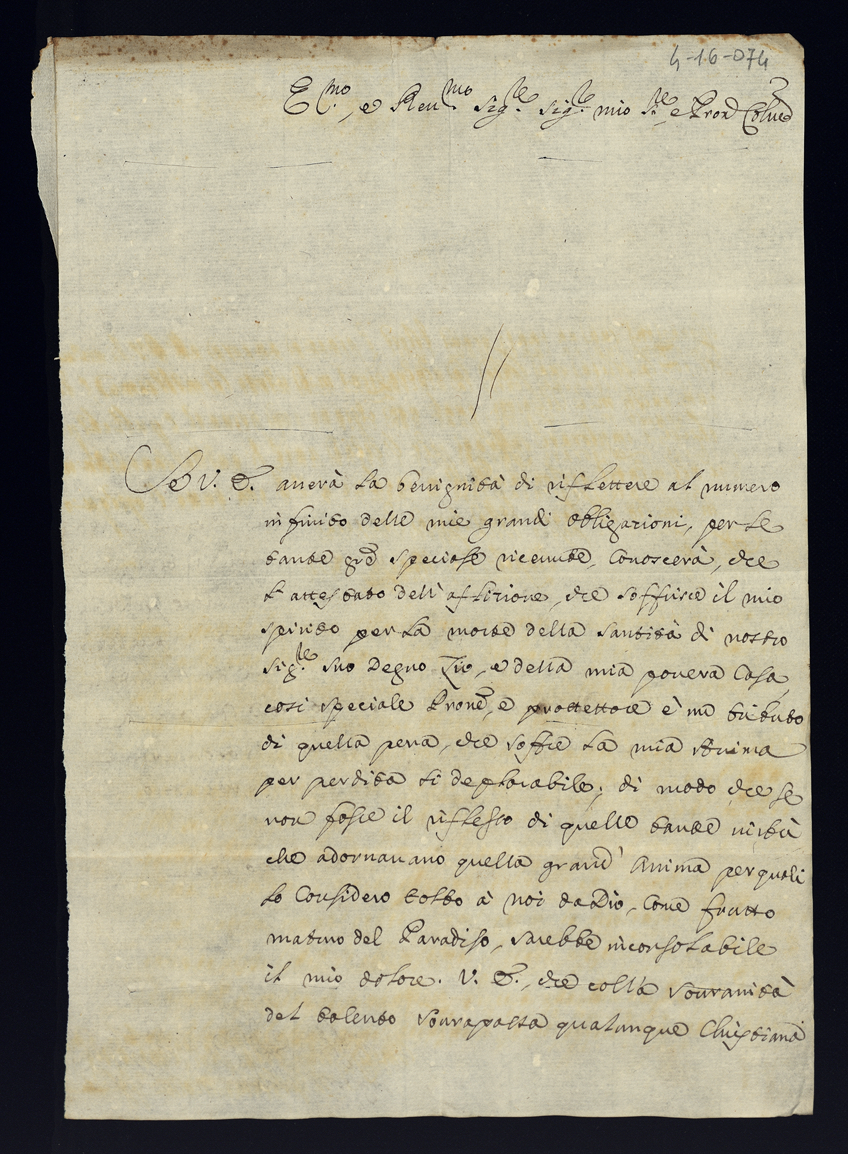 4-16-074
E.mo, e Reu.mo Sig.re Sig.re mio S.re, e Pron Colmo
Se V. E. auerà la benignità di riflettere al numero
infinito delle mie grandi obligazioni, per le
tante grẽ speciose riceuute, conoscerà, che
l'attestato dell'aflizione, che soffrisce il mio
spirito per la morte della Santità di nostro
Sig.re suo degno Zio, e della mia pouera Casa
così speciale Prone, e prottettore è un tributo
di quella pena, che soffre la mia Anima
per perdita sì deplorabile; di modo che se
non fosse il riflesso di quelle tante uirtù
che adornauano quella grand' Anima per quali
lo Considero tolto à noi da Dio, Come frutto
maturo del Paradiso, sarebbe inconsolabile
il mio dolore. V. E., che colla souranità
del talento sourapassa qualunque Christiana